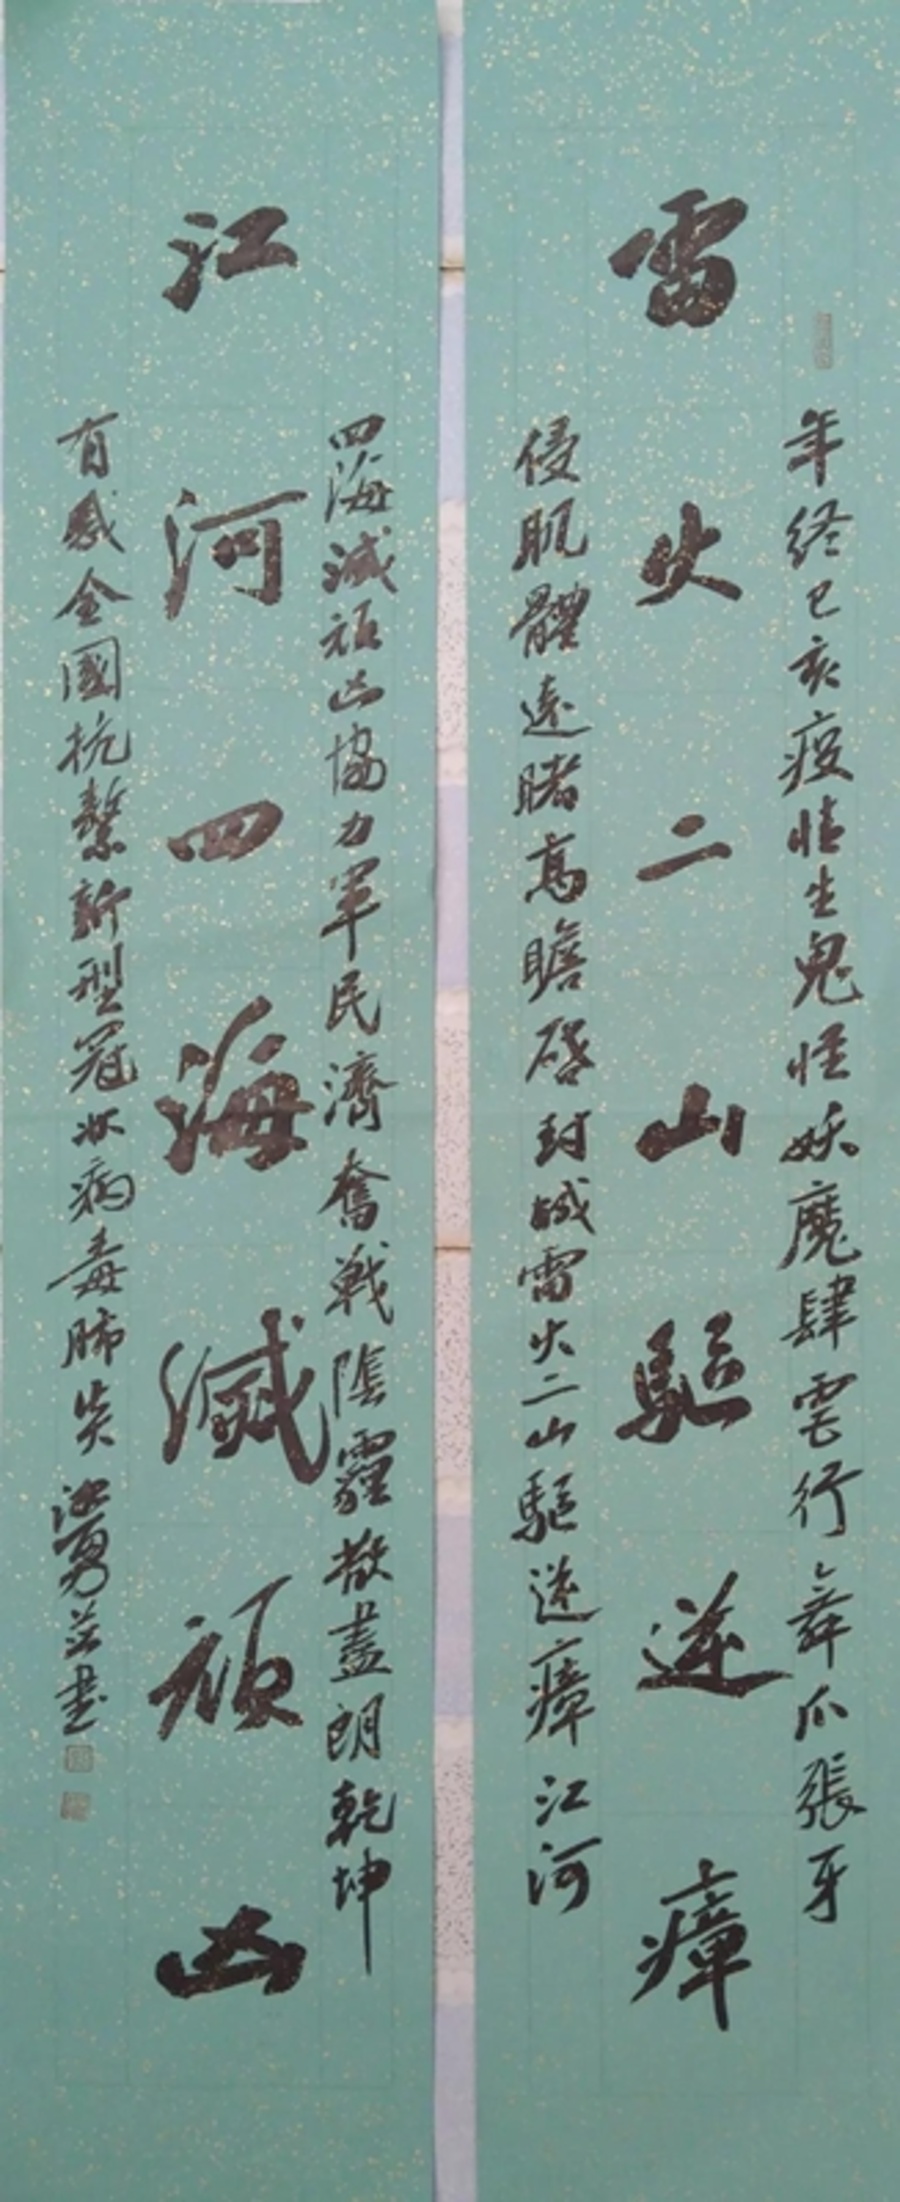 年终已亥疫情生鬼怪妖魔肆雲行舞爪張牙
雷火二山驅逆瘴
侵肌體遠睹高瞻啓封緘雷火二山驅逆瘴江河
四海滅頑凶協力軍民濟奮戰陰霾散盡朗乾坤
江河四海緘頑凶
有感全國抗擊新型冠狀病毒肺炎 勇并书